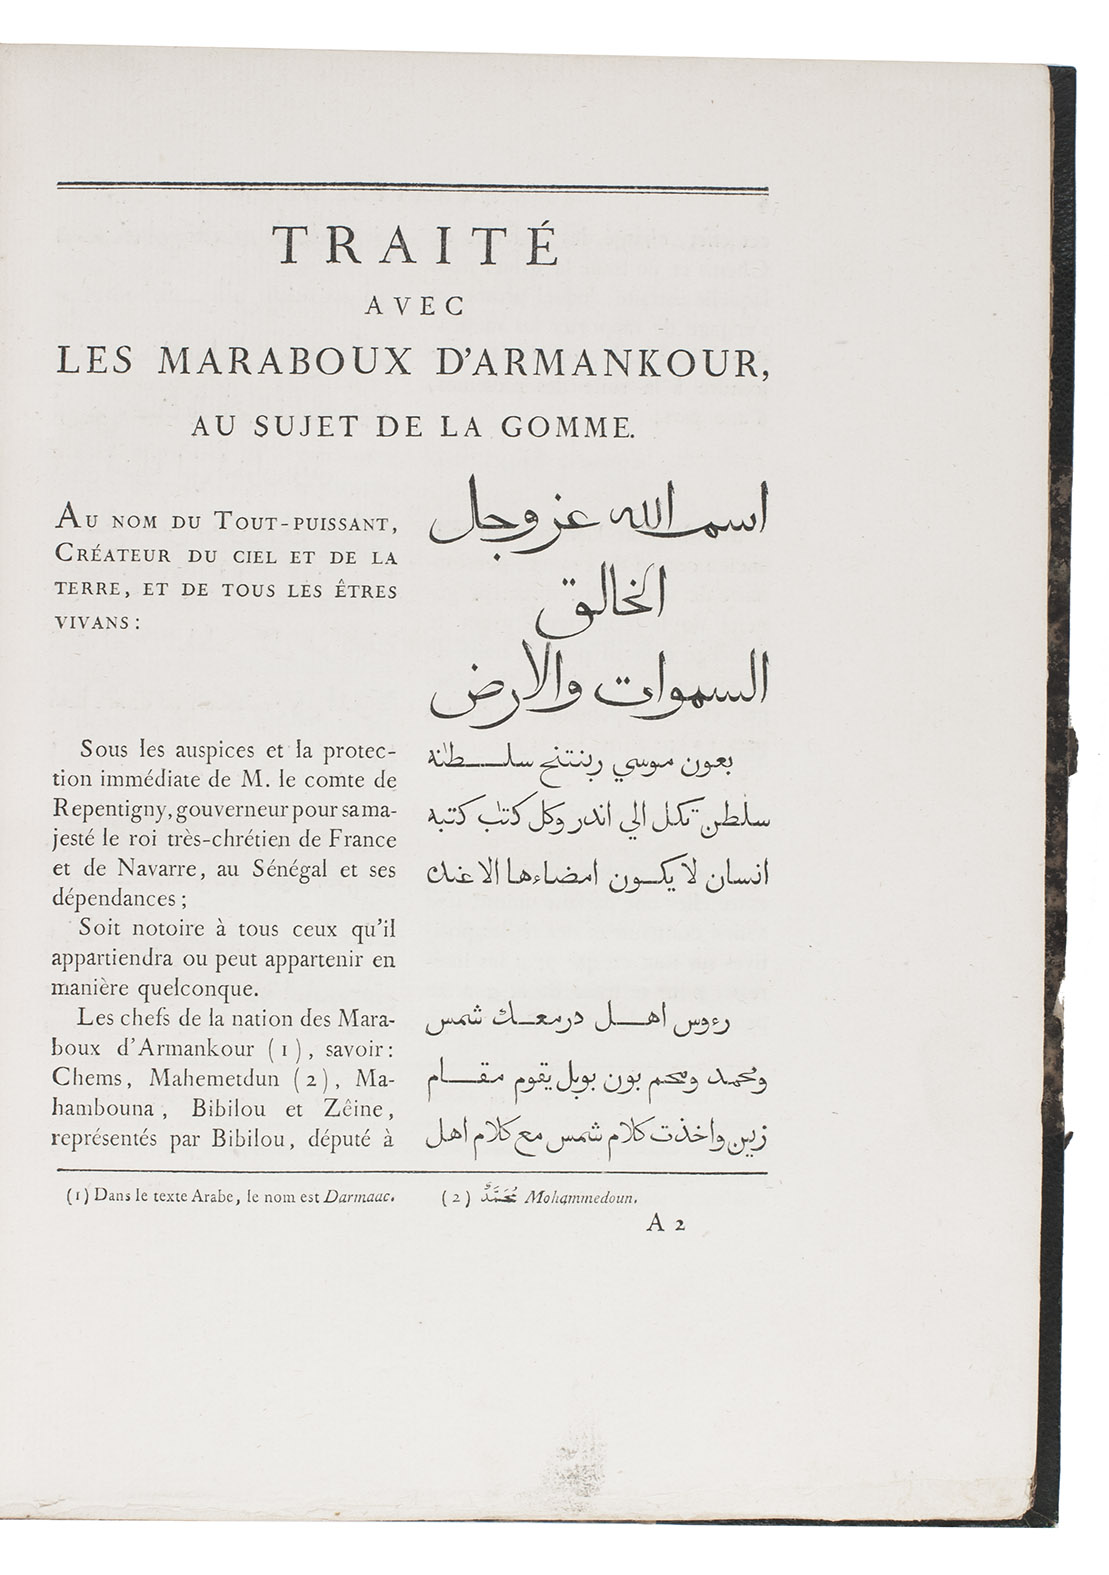 TRAITÉ
AVEC
LES MARABOUX D'ARMANKOUR,
AU SUJET DE LA GOMME.
AU NOM DU TOUT-PUISSANT,
CRÉATEUR DU CIEL ET DE LA
TERRE, ET DE TOUS LES ÊTRES
VIVANS :
Sous les auspices et la protec-
tion immédiate de M. le comte de
Repentigny, gouverneur pour sa ma-
jesté le roi très-chrétien de France
et de Navarre, au Sénégal et ses
dépendances ;
Soit notoire à tous ceux qu'il
appartiendra ou peut appartenir en
manière quelconque.
Les chefs de la nation des Mara-
boux d'Armankour (1), savoir :
Chems, Mahemetdun (2), Ma-
hambouna, Bibilou et Zêine,
représentés par Bibilou, député à
اسم الله عز وجل
الخالق
السموات والارض
بعون موسي ربنتنج سلطنه
سلطن تكل الي اندر وكل كتب كتبه
انسان لا يكون امضاءها الا عنك
رءوس اهل درمعك شمس
ومحمد ومحم بون بوبل يقوم مقام
زين واخذت كلام شمس مع كلام اهل
(1) Dans le texte Arabe, le nom est Darmaac.
(2) مُحَمَّدٌ Mohammedoun.
A 2